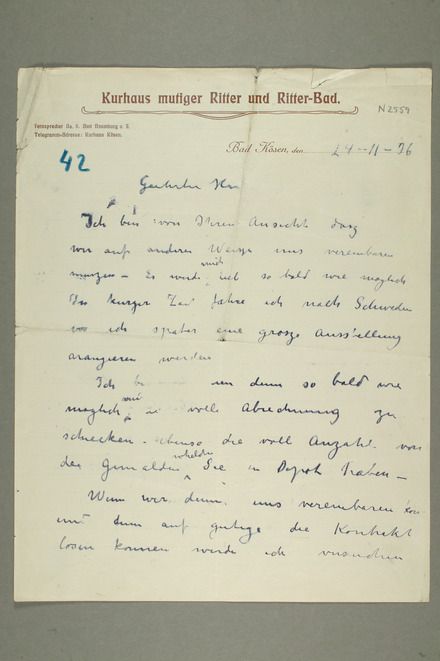 Kurhaus mutiger Ritter und Ritter-Bad.
N 2559
Fernsprecher No. 6. Amt Naumburg a. S.
Telegramm-Adresse: Kurhaus Kösen.
Bad Kösen, den 24-11-06
42
Geehrter Herr
Ich bin von Ihren Ansicht dasz
wir auf anderen Weise uns vereinbaren
muszen – Es wird mich so bald wie moglich
In kurzer Zeit fahre ich nach Schweden
wo ich spater eine grosze Ausstellung
arangieren werden
Ich um denn so bald wie
moglich mir voll Abrechnung zu
schicken – ebenso die voll Anzahl von
den Gemalden welchen Sie in Depot haben –
Wenn wir denn uns vereinbaren kon
und denn auf gutige die Kontrakt
losen konnen werde ich versuchen